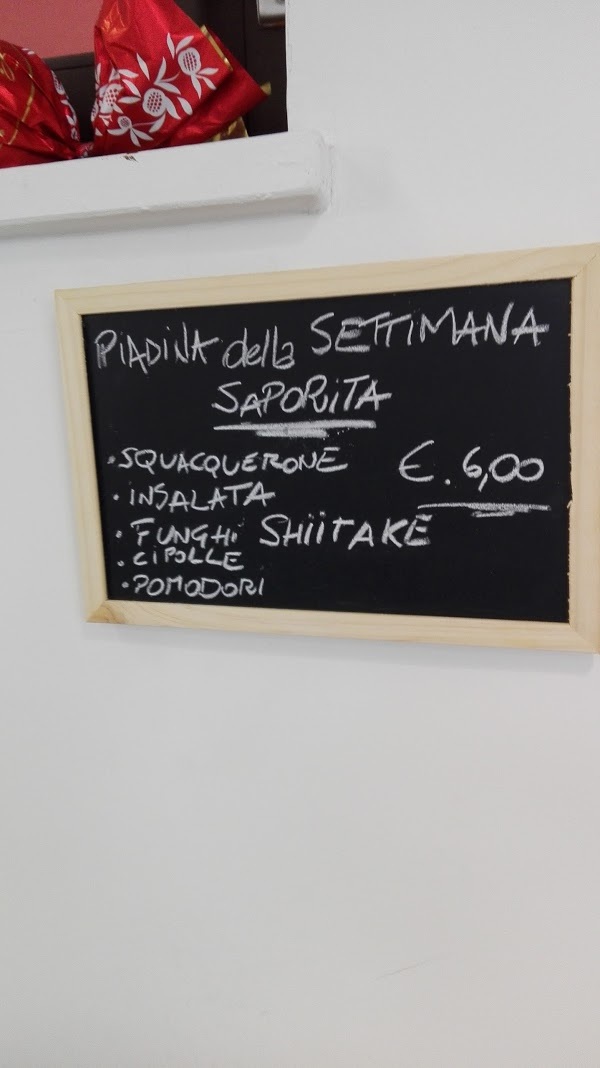 PIADINA della SETTIMANA
SAPORITA
• SQUACQUERONE
€. 6,00
• INSALATA
• FUNGHI SHIITAKE
• CIPOLLE
• POMODORI